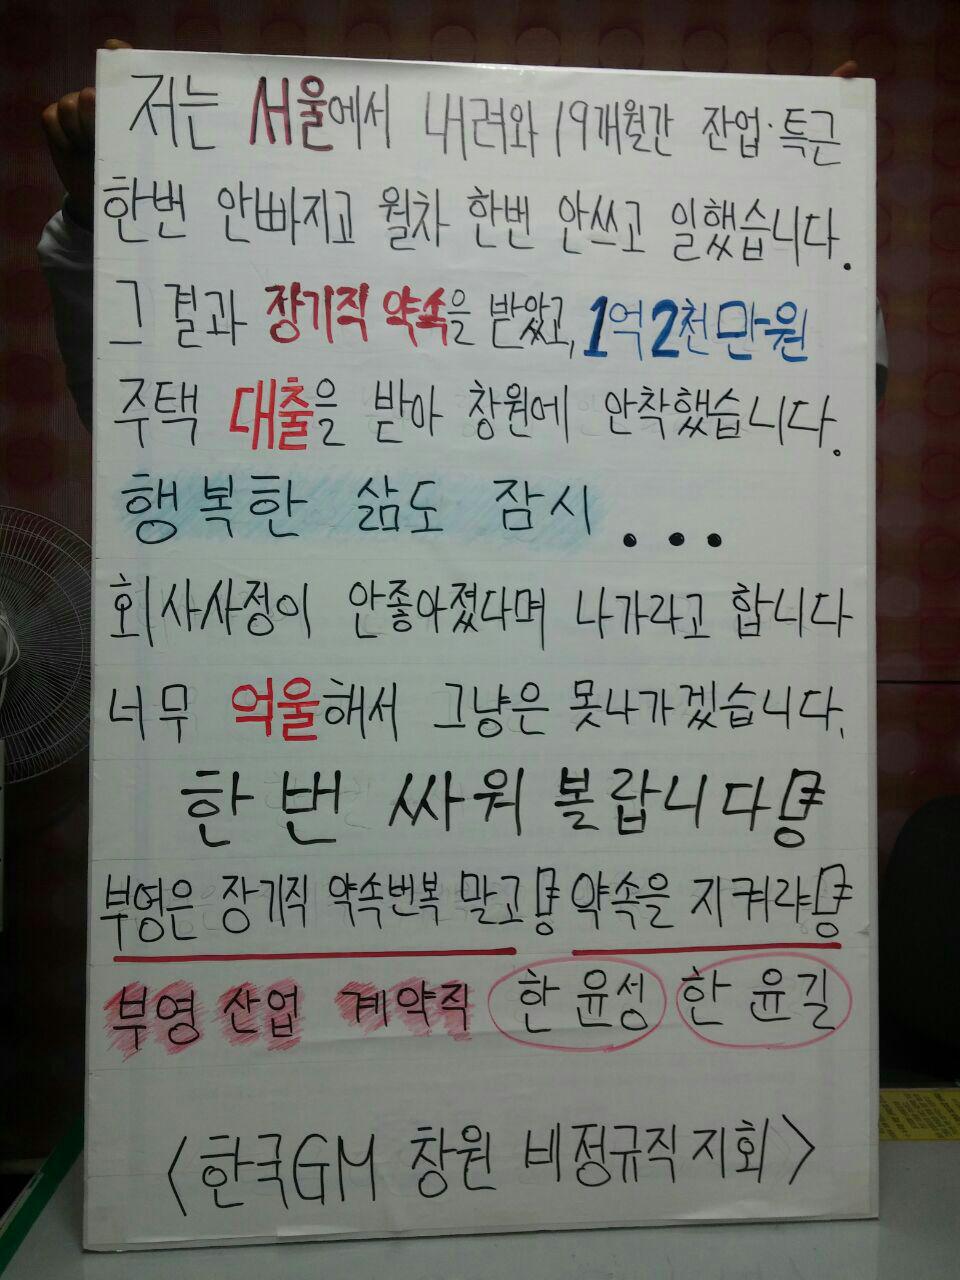 저는 서울에서 내려와 19개월간 잔업·특근
한번 안빠지고 월차 한번 안쓰고 일했습니다.
그 결과 장기직 약속을 받았고, 1억2천만원
주택 대출을 받아 창원에 안착했습니다.
행복한 삶도 잠시...
회사사정이 안좋아졌다며 나가라고 합니다
너무 억울해서 그냥은 못나가겠습니다.
한번 싸워 볼랍니다!
부영은 장기직 약속번복 말고! 약속을 지켜라!
부영 산업 계약직 한윤성 한윤길
<한국GM 창원 비정규직지회>